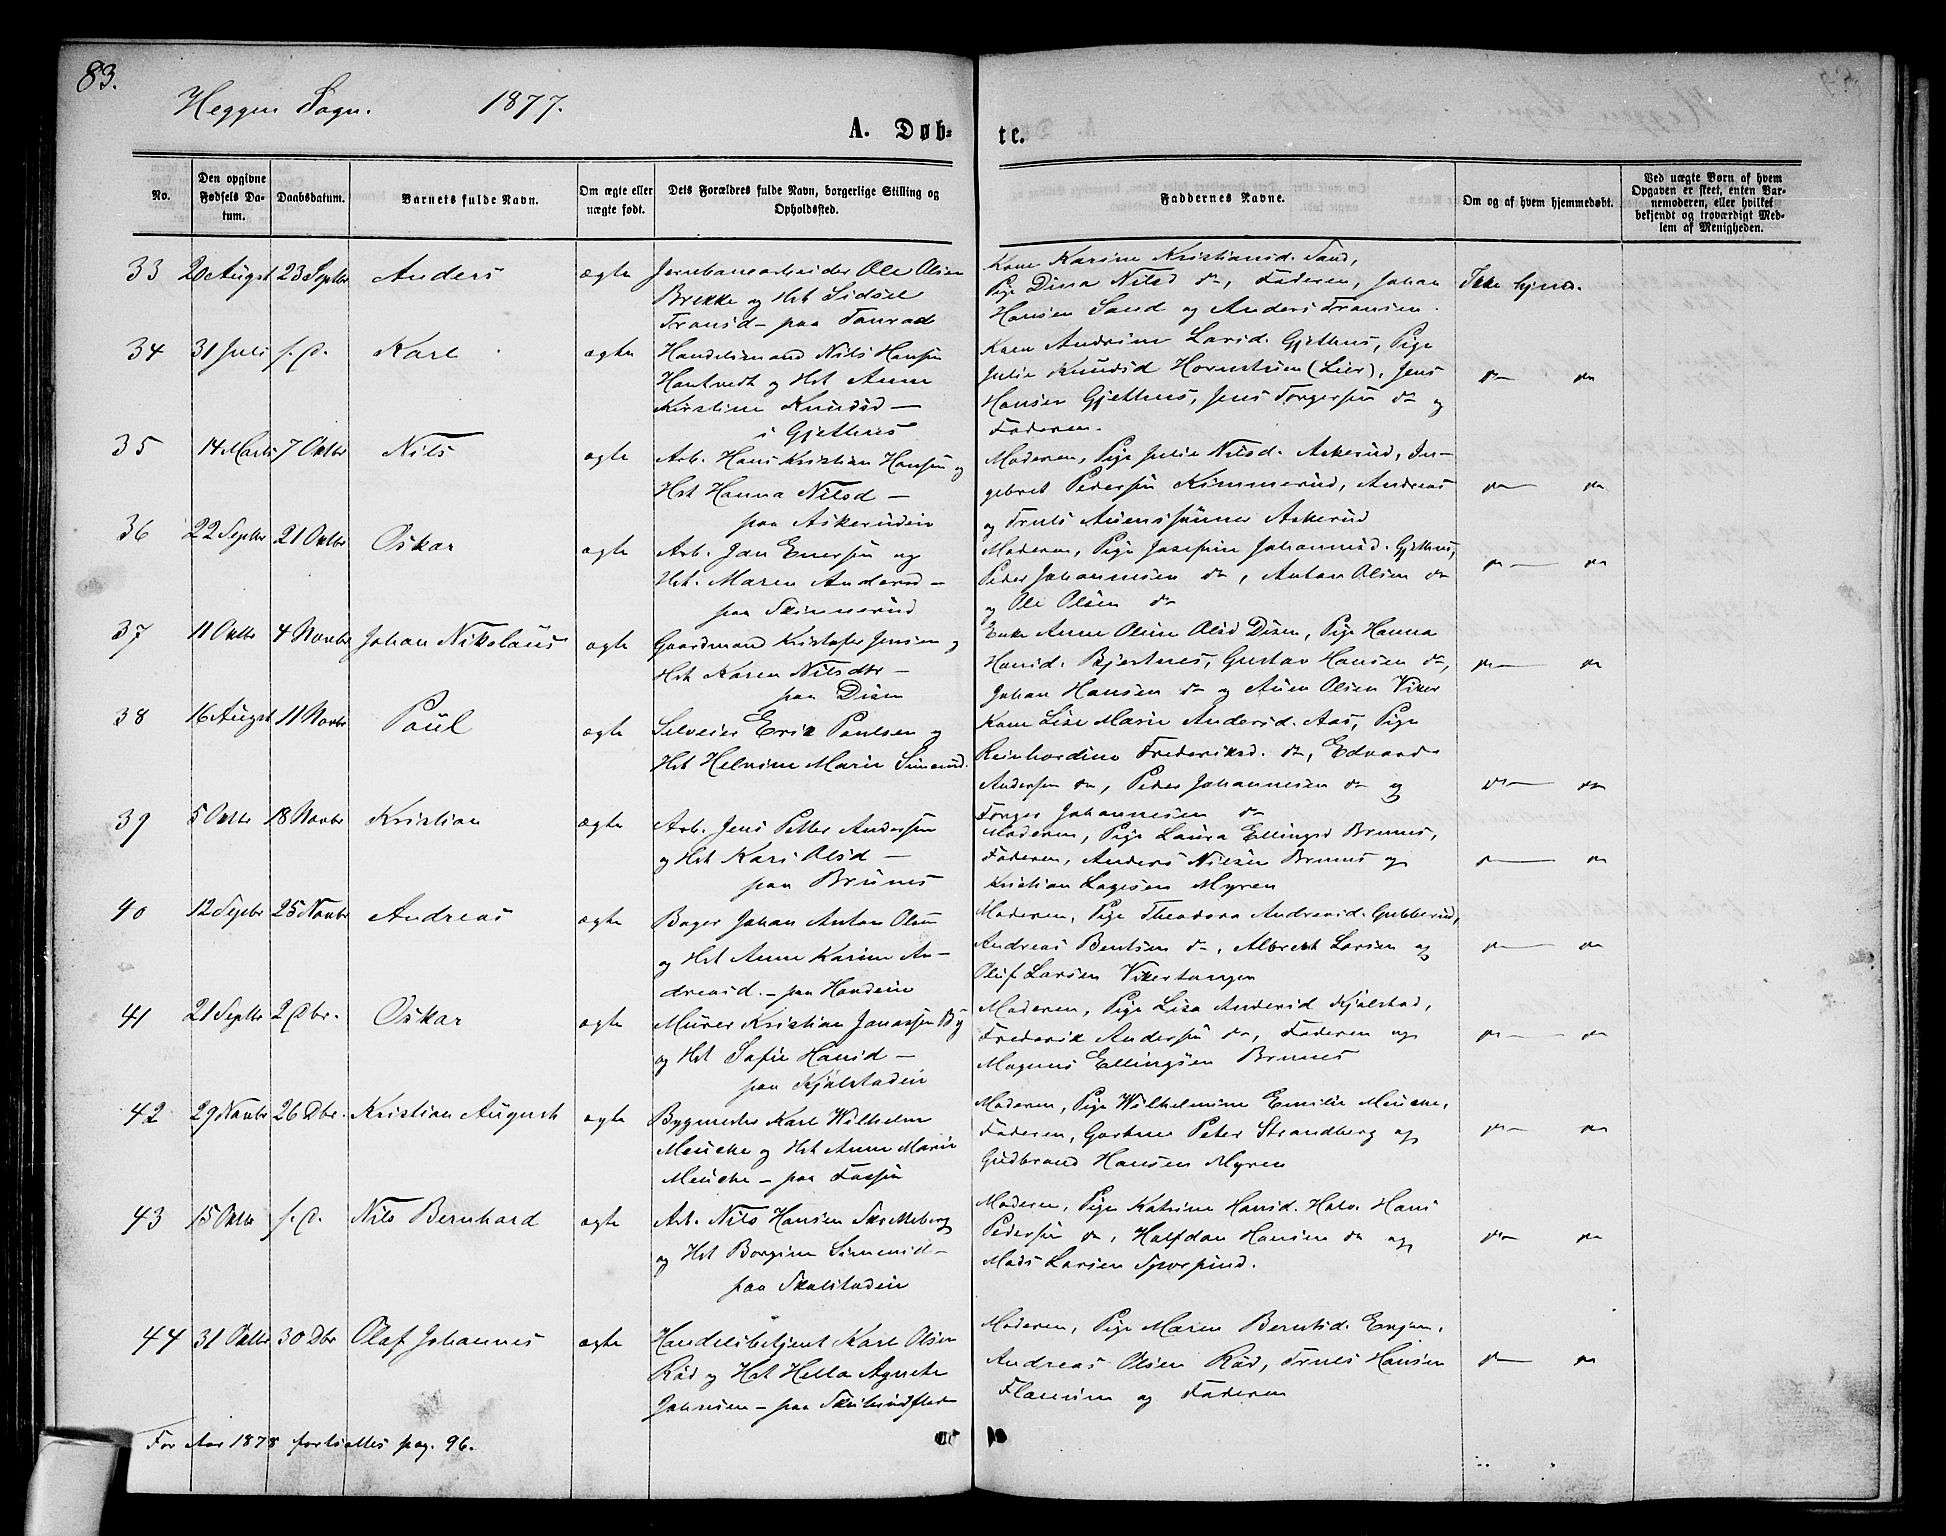 83.
Heggen Sogn. 1877.
A. Døb- te.
No.
Den opgivne Fødsels Da-tum.
Daabsdatum.
Barnets fulde Navn.
Om ægte eller uægte født.
Dets Forældres fulde Navn, borgerlige Stilling og Opholdssted.
Faddernes Navne.
Om og af hvem hjemmedøbt.
Ved uægte Børn af hvem Opgaven er skeet, enten Bar-nemoderen, eller hvilket bekjendt og troværdigt Med-lem af Menigheden.
33 20 Augst 23 Septbr Anders ægte Jernbanearbeider Ole Olsen
Brekke og Hst Sidsel
Fransd - paa
Kone Karine Kristiansd. Sand,
Pige Dina Nilsd do, Faderen, Johan
Hansen Sand og Anders Fransen.
Ikke hjmd.
34 31 Juli s. D. Karl ægte Handelsmand Nils Hansen
og Hst Anne
Kirstine Knudsd -
i Gjethus
Kone Andrine Larsd. Gjethus, Pige
Julie Knudsd (Lier), Jens
Hansen Gjethus, Jens Torgersen do og
Faderen.
do do
35 14 Marts 7 Oktbr Nils ægte Arb. Hans Kristian Hansen og
Hst Hanna Nilsd -
paa Askerudeie
Moderen, Pige Julie Nilsd. Askerud, In-
gebret Pedersen Kimmerud, Andreas
og Truls Auenssønner Askerud
do do
36 22 Septbr 21 Oktbr Oskar ægte Arb. Jan Enersen og
Hst. Maren Andersd -
paa
Moderen, Pige Josefine Johannesd. Gjethus,
Peder Johannesen do, Anton Olsen do
og Ole Olsen do
do do
37 11 Oktbr 4 Novbr Johan Nikolaus ægte Gaardmand Kristofer Jensen og
Hst Karen Nilsdtr -
paa Disen
Enke Anne Oline Olsd Disen, Pige Hanna
Hansd. Bjertnes, Gustav Hansen do,
Johan Hansen do og Auen Olsen Viker
do do
38 16 Augst 11 Novbr Paul ægte Selveier Erik Paulsen og
Hst Helvine Marie Simensd.
Kone Lise Marie Andersd. Aas, Pige
Reinhardine Frederiksd. do, Edvard
Andersen do, Peder Johannesen do og
Torger Johannesen do
do do
39 5 Oktbr 18 Novbr Kristian ægte Arb. Jens Petter Andersen
og Hst Kari Olsd -
paa Brunes
Moderen, Pige Laura Ellingsd Brunes,
Faderen, Anders Nilsen Brunes og
Kristian Lagesen Myren
do do
40 12 Septbr 25 Novbr Andreas ægte Bager Johan Anton Olsen
og Hst Anne Karine An-
dreasd. - paa
Moderen, Pige Theodora Andreasd. Gubberud,
Andreas Bentsen do, Albrekt Larsen og
Oluf Larsen Vikertangen
do do
41 21 Septbr 2 Dbr. Oskar ægte Murer Kristian Jonassen By
og Hst Sofie Hansd -
paa Kjølstadeie
Moderen, Pige Lisa Andersd Kjølstad,
Frederik Andersen do, Faderen og
Magnus Ellingsen Brunes
do do
42 29 Novbr 26 Dbr. Kristian August ægte Bygmester Karl Wilhelm
Meucke og Hst Anne Marie
Meucke - paa Fossen
Moderen, Pige Wilhelmine Emilie Meucke,
Faderen, Gartner Peter Strandberg og
Gudbrand Hansen Myren
do do
43 15 Oktbr s. D. Nils Bernhard ægte Arb. Nils Hansen
og Hst Borgine Simensd -
paa Skalstadeie
Moderen, Pige Katrine Hansd. Hals. Hans
Pedersen do, Halfdan Hansen do og
Mads Larsen
do do
44 31 Oktbr 30 Dbr Olaf Johannes ægte Handelsbetjent Karl Olsen
Röd og Hst Hella Agnethe
Johnsen - paa
Moderen, Pige Maren Berntsd. Engen.
Andreas Olsen Röd, Truls Hansen
og Faderen
do do
For Aar 1878 fortsættes pag. 96.